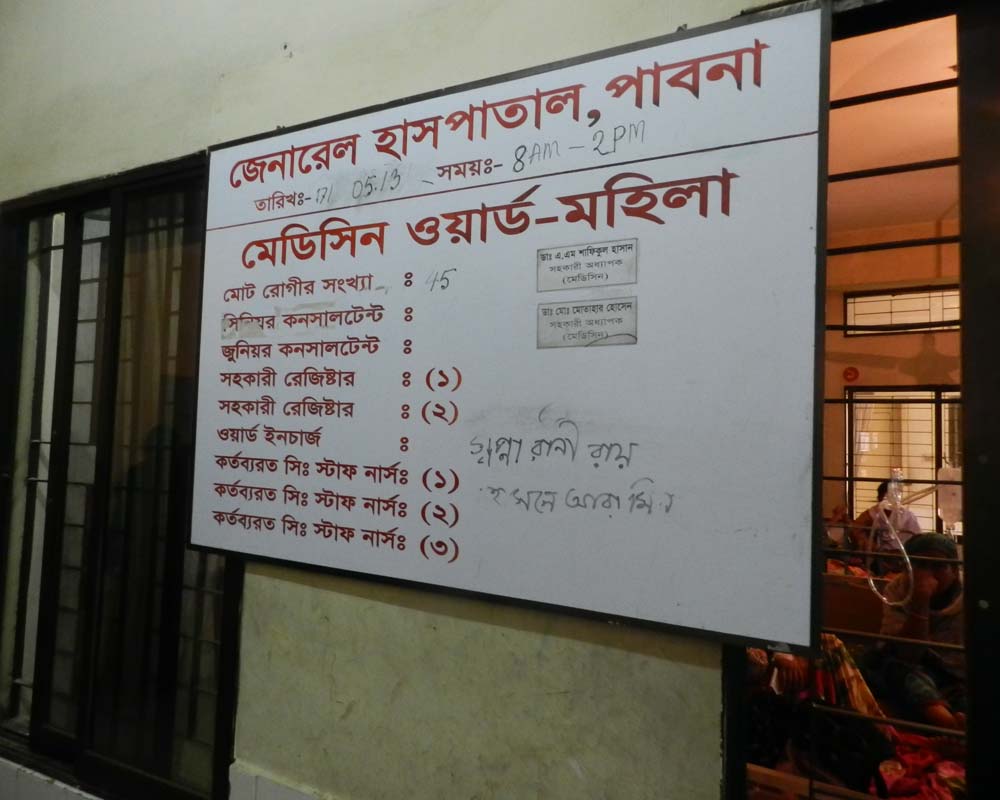 জেনারেল হাসপাতাল, পাবনা
তারিখঃ- 05.13 সময়ঃ- 8AM - 2PM
মেডিসিন ওয়ার্ড-মহিলা
মোট রোগীর সংখ্যা ঃ 45
সিনিয়র কনসালটেন্ট ঃ
জুনিয়র কনসালটেন্ট ঃ
সহকারী রেজিষ্টার ঃ (১)
সহকারী রেজিষ্টার ঃ (২)
ওয়ার্ড ইনচার্জ ঃ রানী রায়
কর্তব্যরত সিঃ স্টাফ নার্সঃ (১) আরা
কর্তব্যরত সিঃ স্টাফ নার্সঃ (২)
কর্তব্যরত সিঃ স্টাফ নার্সঃ (৩)
ডাঃ এ.এম শাফিকুল হাসান
সহকারী অধ্যাপক
(মেডিসিন)
ডাঃ মোঃ মোতাহার হোসেন
সহকারী অধ্যাপক
(মেডিসিন)